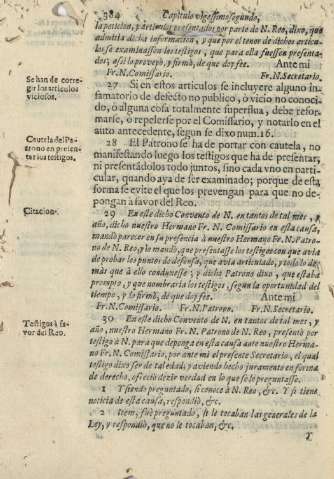 384 Capitulo vigessimosegundo,
la peticion, y articulos presentados por parte de N. Reo, dixo, que
admitia dicha informacion, y que por el tenor de dichos articu-
los se examinassen los testigos, que para ella fuessen presenta-
dos; assi lo proveyò, y firmò, de que doy fee. Ante mi
Fr. N. Comissario. Fr. N. Secretario.
Se han de corre-
gir los articulos
viciosos.
27 Si en estos articulos se incluyere alguno in-
famatorio de defecto no publico, ò vicio no conoci-
do, ò alguna cosa totalmente superflua, debe refor-
marse, ò repelerse por el Comissario, y notarlo en el
auto antecedente, segun se dixo num. 16.
Cautela del Pa-
trono en presen-
tar los testigos.
28 El Patrono se ha de portar con cautela, no
manifestando luego los testigos que ha de presentar,
ni presentandolos todos juntos, sino cada vno en parti-
cular, quando aya de ser examinado; porque de esta
forma se evite el que los prevengan para que no de-
pongan à favor del Reo.
Citacion.
29 En este dicho Convento de N. en tantos de tal mes, y
año, dicho nuestro Hermano Fr. N. Comissario en esta causa,
mandò parecer en su presencia à nuestro Hermano Fr. N. Patro-
no de N. Reo, y le mandò, que presentasse los testigos con que avia
de probar los puntos de defensa, que avia articulado, y todo lo de-
màs que à ello conduxesse; y dicho Patrono dixo, que estaba
prompto, y que nombraria los testigos, segun la oportunidad del
tiempo, y lo firmò, de que doy fee. Ante mi
Fr. N. Comissario. Fr. N. Patrono. Fr. N. Secretario.
Testigos à fa-
vor del Reo.
30 En este dicho Convento de N. en tantos de tal mes, y
año, nuestro Hermano Fr. N. Patrono de N. Reo, presentò por
testigo à N. para que deponga en esta causa ante nuestro Herma-
no Fr. N. Comissario, por ante mi el presente Secretario, el qual
testigo dixo ser de tal edad; y aviendo hecho juramento en forma
de derecho, ofreciò dezir verdad en lo que se le preguntasse.
1 Y siendo preguntado, si conoce à N. Reo, &c. Y si tiene
noticia de esta causa, respondiò, &c.
2 Item, fuè preguntado, si le tocaban las generales de la
Ley, y respondiò, que no le tocaban, &c.